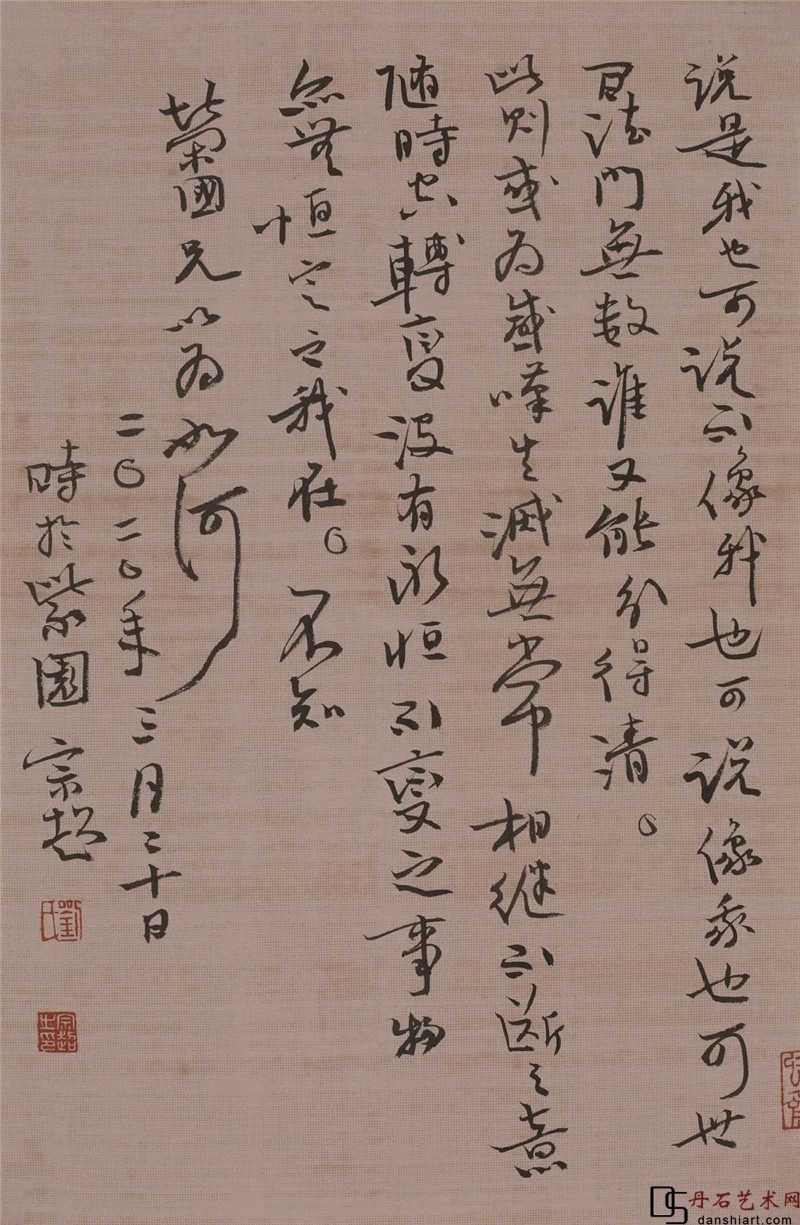 说是我也可说不像我也可说像我也可世
间法门無数谁又能分得清。
此则或为感嘆生滅無常相继不断之意
随時空轉变没有永恒不变之事物
亦無恒定之我在。不知
榮國兄以为如何
二〇二〇年三月二十日
時於紫園 宗超
劉氏
宗超之印
丹石艺术网
danshiart.com